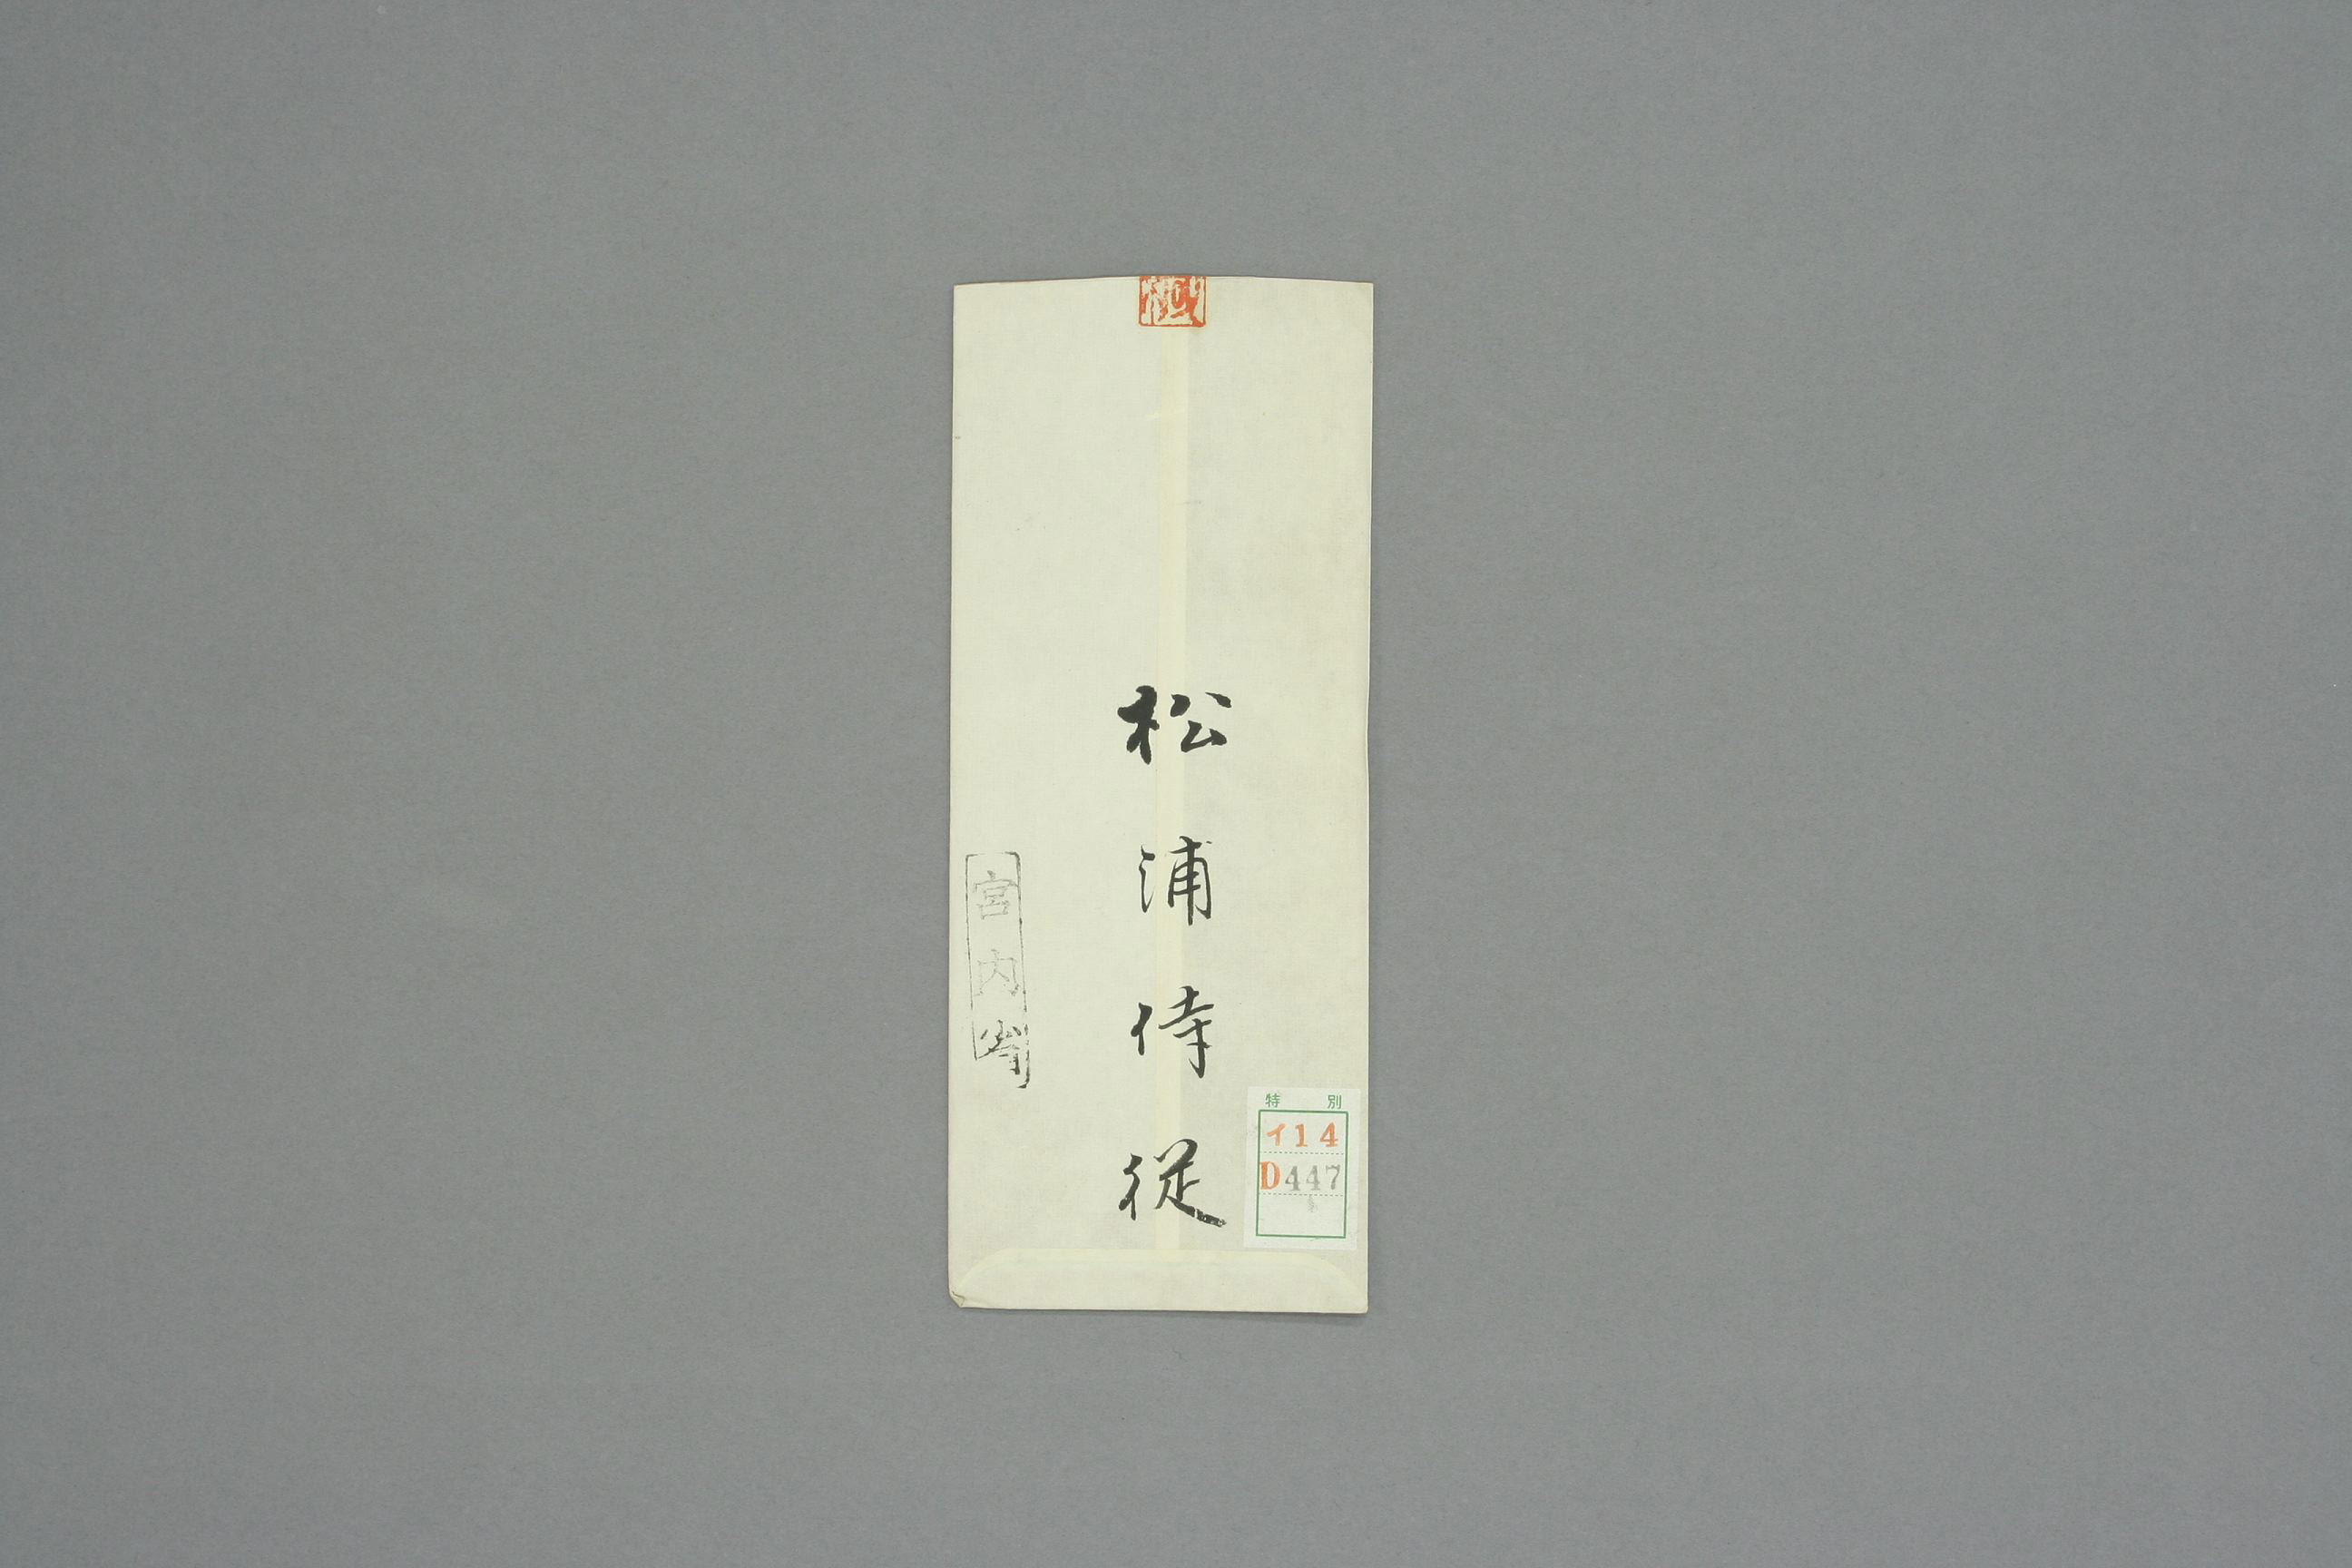 松浦侍従
宮内省
特別
イ14
D447
1